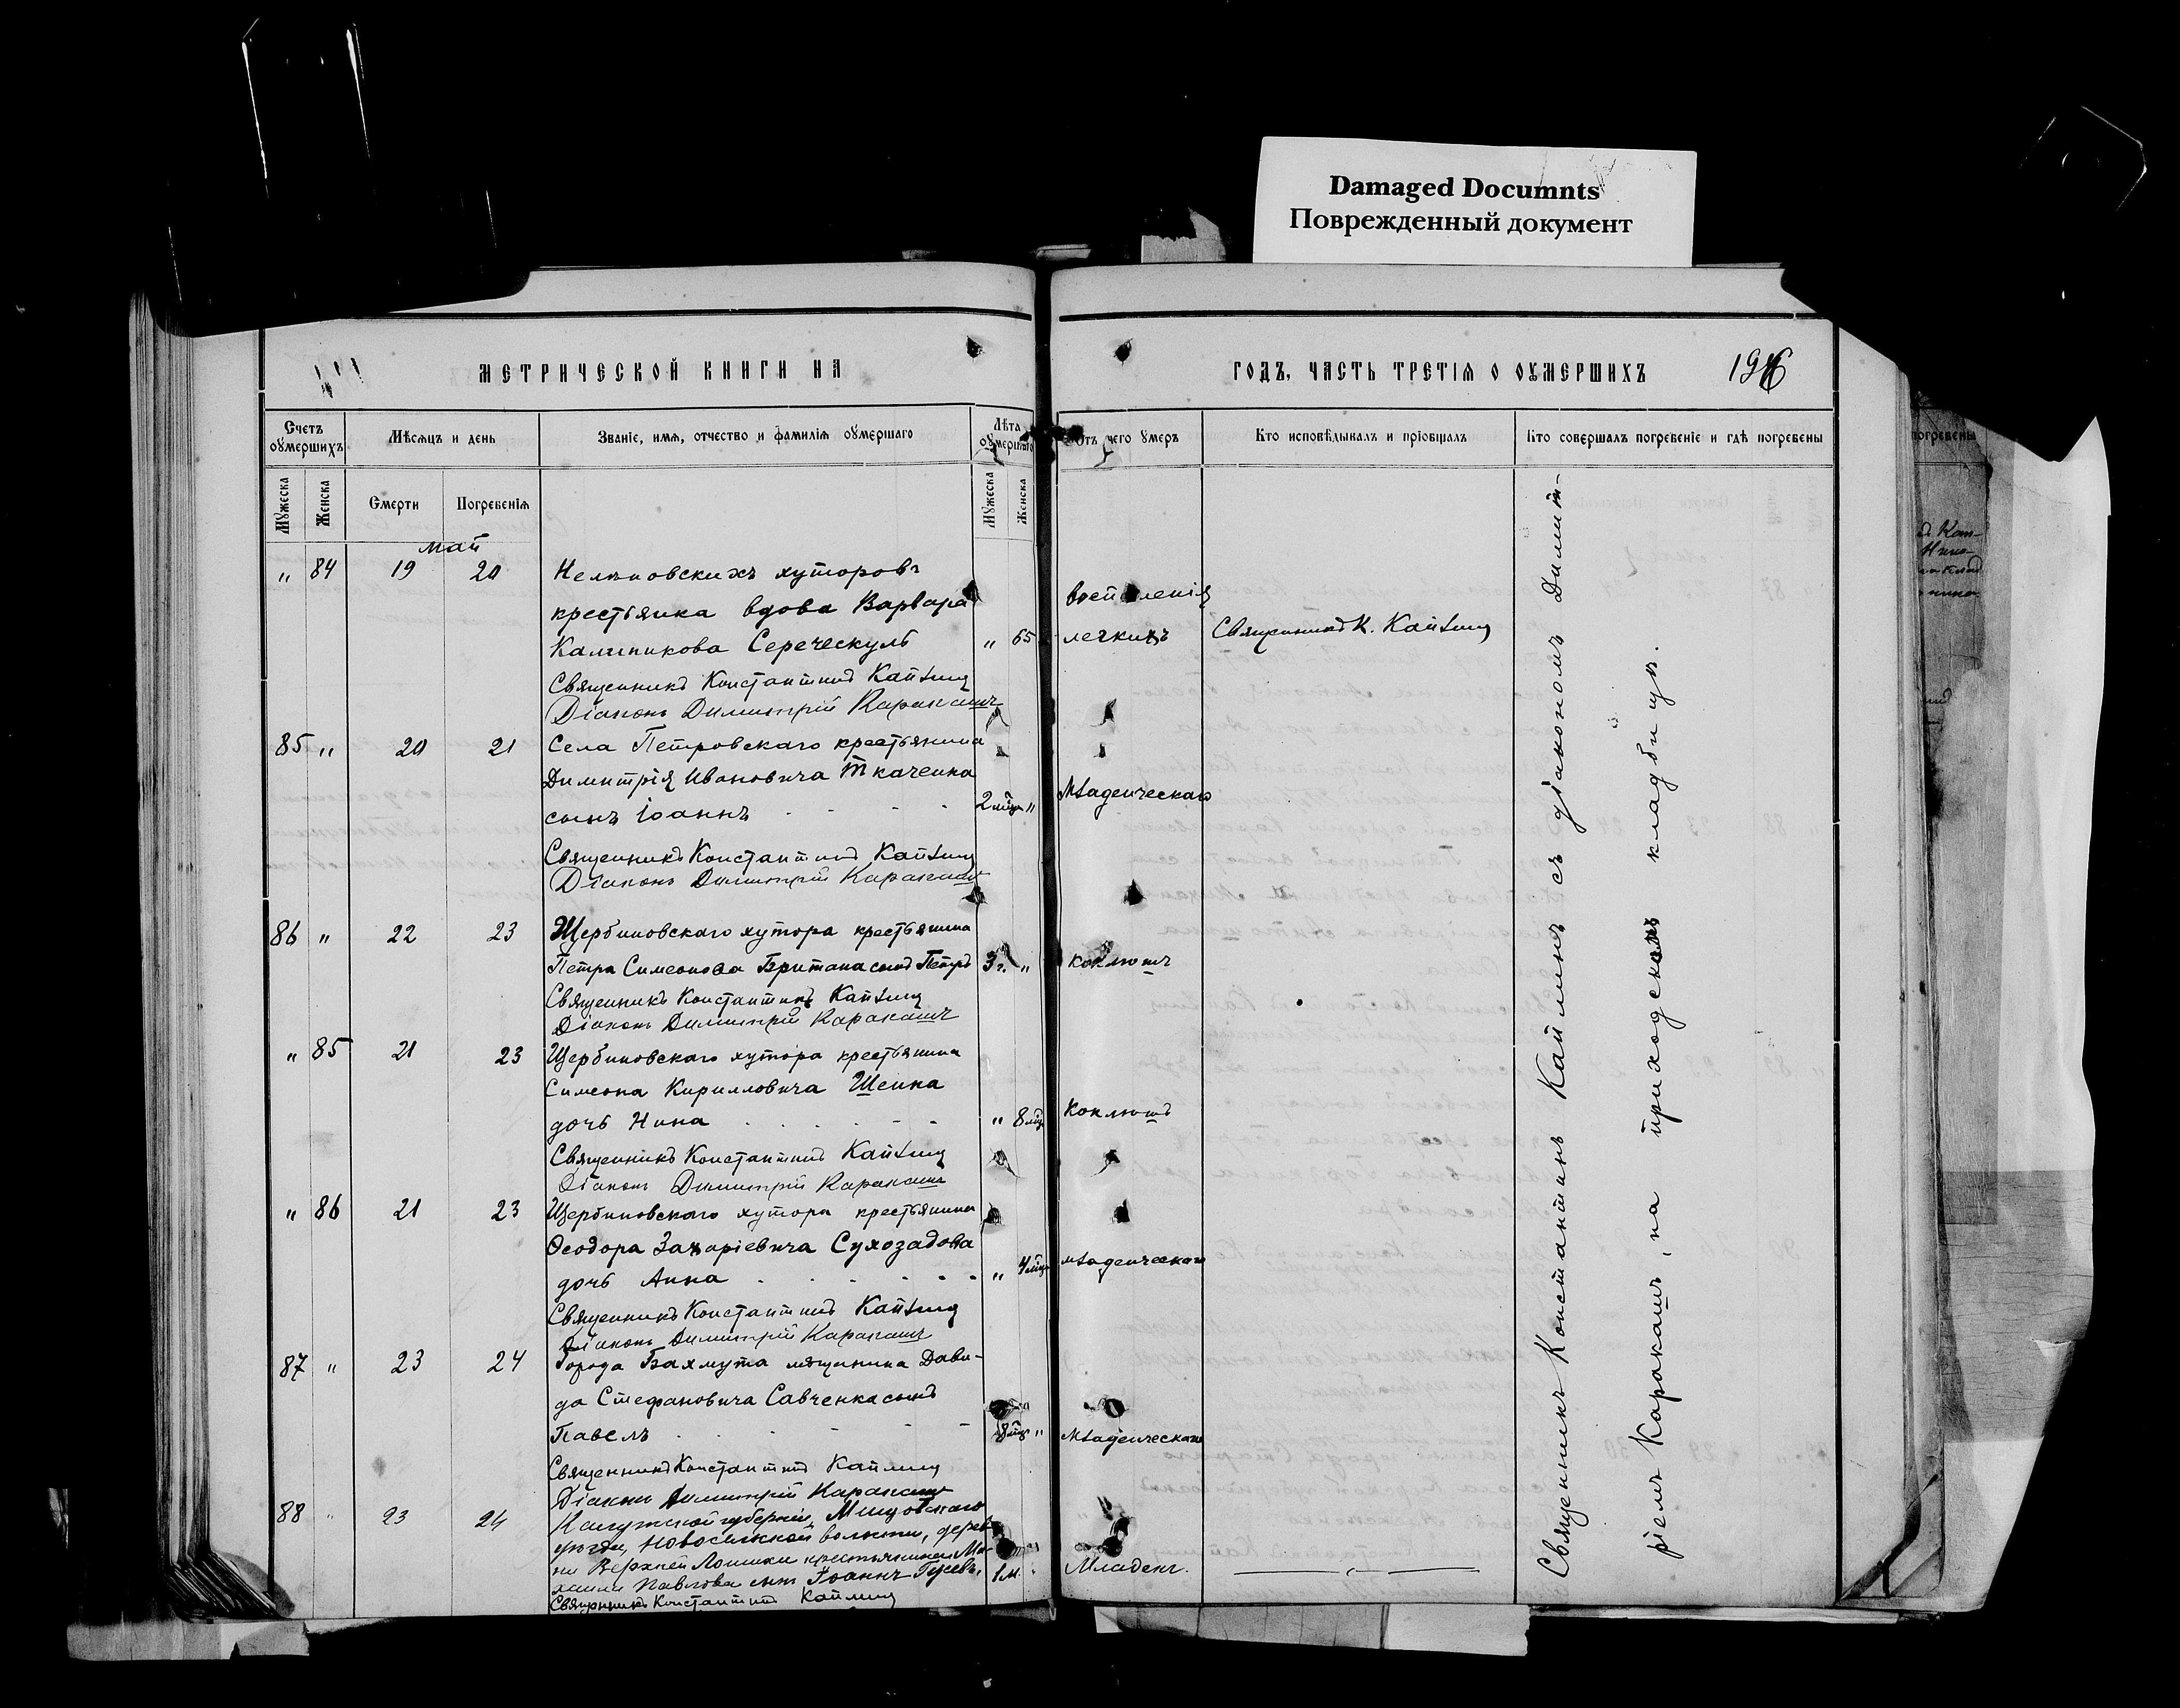 Damaged Documnts
Поврежденный документ
МЕТРИЧЕСКОЙ КНИГИ НА
ГОДЪ, ЧАСТЬ ТРЕТІЯ О ОУМЕРШИХЪ
Счетъ оумершихъ
Мѣсяцъ и день
Званіе, имя, отчество и фамилія оумершаго
Лѣта оумершаго
Отъ чего умеръ
Кто исповѣдывалъ и пріобщалъ
Кто совершалъ погребеніе и гдѣ погребены
Мужеска
Женска
Смерти
Погребенія
Мужеска
Женска
май
" 84 19 20 хуторовъ
крестьянка вдова Варвара
Калиникова Сереческуль " 65 легкихъ Священникъ К. Каплинъ
Священникъ Константинъ Каплинъ
Діаконъ Димитрій Каракашъ
85 " 20 21 Села Петровскаго крестьянина
Димитрія Ивановича Ткаченка
сынъ Іоаннъ 2 мѣс. " Младенческаго
Священникъ Константинъ Каплинъ
Діаконъ Димитрій Каракашъ
86 " 22 23 Щербиновскаго хутора крестьянина
Петра Симеонова Британа сынъ Петръ 3 г. " коклюшъ
Священникъ Константинъ Каплинъ
Діаконъ Димитрій Каракашъ
" 85 21 23 Щербиновскаго хутора крестьянина
Симеона Кирилловича Шеина
дочь Нина " 8 мѣс. Коклюшъ
Священникъ Константинъ Каплинъ
Діаконъ Димитрій Каракашъ
" 86 21 23 Щербиновскаго хутора крестьянина
Ѳеодора Захаріевича Сухозадова
дочь Анна " 4 мѣс. младенческаго
Священникъ Константинъ Каплинъ
Діаконъ Димитрій Каракашъ
87 " 23 24 Города Бахмута мѣщанина Дави-
да Стефановича Савченка сынъ
Павелъ 8 мѣс. " Младенческаго
Священникъ Константинъ Каплинъ
Діаконъ Димитрій Каракашъ
88 " 23 24 Калужской губерніи, Мещовскаго
уѣзда, волости, дерев-
ни Верхней крестьянина Ми-
хаила Павлова сынъ Іоаннъ Гусевъ, 1 м. " Младенч.
Священникъ Константинъ Каплинъ
Священникъ Константинъ Каплинъ съ діакономъ Димит-
ріемъ Каракашъ, на приходскомъ кладбищѣ.